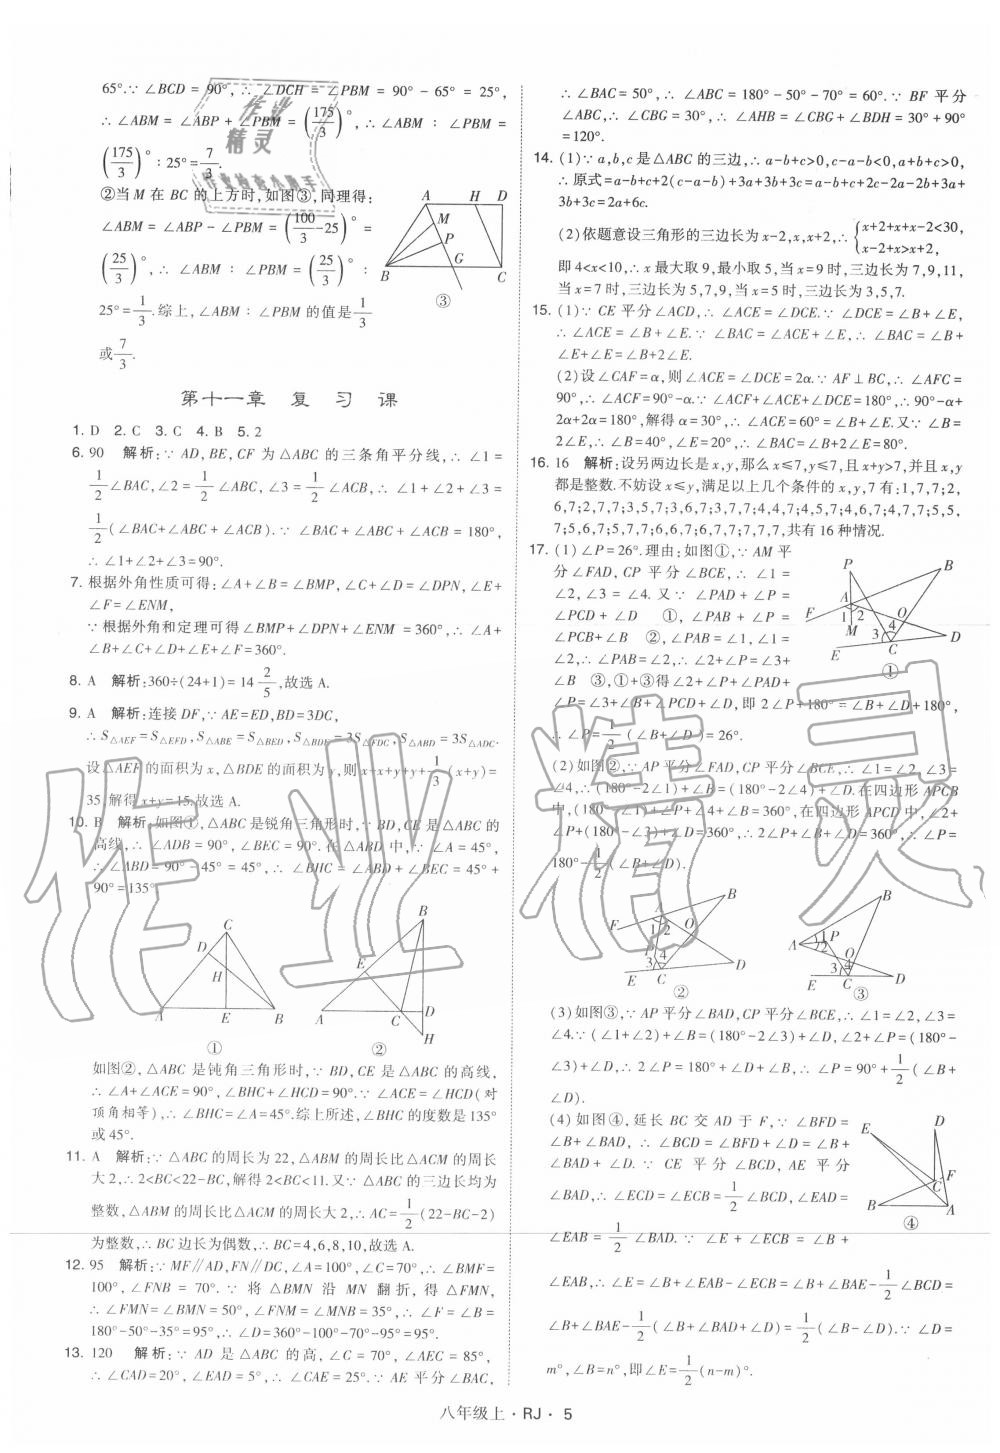 65°.∵ ∠BCD = 90°, ∴ ∠DCH = ∠PBM = 90° - 65° = 25°,
∴ ∠ABM = ∠ABP + ∠PBM = (175/3)°, ∴ ∠ABM ∶ ∠PBM =
(175/3)° ∶ 25° = 7/3.
②当 M 在 BC 的上方时,如图③,同理得:
∠ABM = ∠ABP - ∠PBM = (100/3 - 25)° =
(25/3)°, ∴ ∠ABM ∶ ∠PBM = (25/3)° ∶
25° = 1/3.综上,∠ABM ∶ ∠PBM 的值是 1/3
或 7/3.
A H D
M
P
G
B C
③
第十一章 复 习 课
1. D 2. C 3. C 4. B 5. 2
6. 90 解析:∵ AD,BE,CF 为△ABC 的三条角平分线,∴ ∠1 =
1/2 ∠BAC,∠2 = 1/2 ∠ABC,∠3 = 1/2 ∠ACB,∴ ∠1 + ∠2 + ∠3 =
1/2 (∠BAC+∠ABC + ∠ACB).∵ ∠BAC + ∠ABC + ∠ACB = 180°,
∴ ∠1+∠2+∠3=90°.
7. 根据外角性质可得:∠A+∠B=∠BMP,∠C+∠D=∠DPN,∠E+
∠F=∠ENM,
∵根据外角和定理可得∠BMP+∠DPN+∠ENM =360°,∴ ∠A+
∠B+∠C+∠D+∠E+∠F=360°.
8. A 解析:360÷(24+1)= 14 2/5,故选 A.
9. A 解析:连接 DF,∵ AE=ED,BD=3DC,
∴ S△AEF = S△EFD, S△ABE = S△BED, S△BDF = 3S△FDC, S△ABD = 3S△ADC.
设△AEF 的面积为 x,△BDE 的面积为 y,则 x+x+y+y+1/3(x+y)=
35,解得 x+y=15,故选 A.
10. B 解析:如图①,△ABC 是锐角三角形时,∵ BD,CE 是△ABC 的
高线,∴ ∠ADB = 90°,∠BEC = 90°.在△ABD 中,∵ ∠A = 45°,
∴ ∠ABD = 90° - 45° = 45°, ∴ ∠BHC = ∠ABD + ∠BEC = 45° +
90° = 135°.
C
D
H
A E B
①
B
E
A C D
H
②
如图②,△ABC 是钝角三角形时,∵ BD,CE 是△ABC 的高线,
∴ ∠A+∠ACE=90°,∠BHC+∠HCD=90°.∵ ∠ACE=∠HCD(对
顶角相等),∴ ∠BHC=∠A=45°.综上所述,∠BHC 的度数是 135°
或 45°.
11. A 解析:∵ △ABC 的周长为 22,△ABM 的周长比△ACM 的周长
大 2,∴ 2<BC<22-BC,解得 2<BC<11.又∵ △ABC 的三边长均为
整数,△ABM 的周长比△ACM 的周长大 2,∴ AC=1/2(22-BC-2)
为整数,∴ BC 边长为偶数,∴ BC=4,6,8,10,故选 A.
12. 95 解析:∵ MF∥AD,FN∥DC,∠A=100°,∠C=70°,∴ ∠BMF=
100°, ∠FNB = 70°. ∵ 将 △BMN 沿 MN 翻折, 得 △FMN,
∴ ∠FMN=∠BMN=50°,∠FNM=∠MNB=35°,∴ ∠F=∠B=
180°-50°-35°=95°,∴ ∠D=360°-100°-70°-95°=95°.
13. 120 解析:∵ AD 是△ABC 的高,∠C = 70°,∠AEC = 85°,
∴ ∠CAD=20°,∠EAD=5°,∴ ∠CAE=25°.∵ AE 平分∠BAC,
∴ ∠BAC= 50°, ∴ ∠ABC = 180° - 50° - 70° = 60°. ∵ BF 平分
∠ABC,∴ ∠CBG = 30°,∴ ∠AHB = ∠CBG + ∠BDH = 30° + 90°
= 120°.
14. (1)∵ a,b,c 是△ABC 的三边,∴ a-b+c>0,c-a-b<0,a+b+c>0,
∴ 原式=a-b+c+2(c-a-b)+3a+3b+3c=a-b+c+2c-2a-2b+3a+
3b+3c=2a+6c.
(2)依题意设三角形的三边长为 x-2,x,x+2,∴ {x+2+x+x-2<30,
x-2+x>x+2,
即 4<x<10,∴ x 最大取 9,最小取 5,当 x=9 时,三边长为 7,9,11,
当 x=7 时,三边长为 5,7,9,当 x=5 时,三边长为 3,5,7.
15. (1)∵ CE 平分∠ACD,∴ ∠ACE=∠DCE.∵ ∠DCE=∠B+∠E,
∴ ∠ACE = ∠B + ∠E. ∵ ∠BAC = ∠ACE + ∠E, ∴ ∠BAC = ∠B +
∠E+∠E=∠B+2∠E.
(2)设∠CAF=α,则∠ACE=∠DCE=2α.∵ AF⊥BC,∴ ∠AFC=
90°,∴ ∠ACF=90°-α.∵ ∠ACF+∠ACE+∠DCE=180°,∴ 90°-α+
2α+2α=180°,解得 α=30°,∴ ∠ACE=60°=∠B+∠E.又∵ ∠B=
2∠E,∴ ∠B=40°,∠E=20°,∴ ∠BAC=∠B+2∠E=80°.
16. 16 解析:设另两边长是 x,y,那么 x≤7,y≤7,且 x+y>7,并且 x,y
都是整数.不妨设 x≤y,满足以上几个条件的 x,y,7 有:1,7,7;2,
6,7;2,7,7;3,5,7;3,6,7;3,7,7;4,4,7;4,5,7;4,6,7;4,7,7;5,5,
7;5,6,7;5,7,7;6,6,7;6,7,7;7,7,7,共有 16 种情况.
17. (1) ∠P=26°.理由:如图①,∵ AM 平
分∠FAD,CP 平分∠BCE,∴ ∠1 =
∠2,∠3 = ∠4. 又∵ ∠PAD + ∠P =
∠PCD+∠D ①,∠PAB + ∠P =
∠PCB+∠B ②,∠PAB=∠1,∠1=
∠2,∴ ∠PAB=∠2,∴ ∠2+∠P=∠3+
∠B ③,①+③得∠2+∠P+∠PAD+
∠P=∠3+∠B+∠PCD+∠D,即 2∠P+180°=∠B+∠D+180°,
∴ ∠P= 1/2 (∠B+∠D)= 26°.
P B
A
F 1 2 O
M 3 4 D
E C
①
(2)如图②,∵ AP 平分∠FAD,CP 平分∠BCE,∴ ∠1=∠2,∠3=
∠4,∴(180°-2∠1)+∠B=(180°-2∠4)+∠D.在四边形 APCB
中,(180°-∠1)+∠P+∠4+∠B=360°,在四边形 APCD 中,∠2+
∠P+(180°-∠3)+∠D=360°,∴ 2∠P+∠B+∠D=360°,∴ ∠P=
180°-1/2(∠B+∠D).
B
A
F 1 2 O
P
3 4 D
E C
②
B
P
A 1 2
O
3 4
E C D
③
(3)如图③,∵ AP 平分∠BAD,CP 平分∠BCE,∴ ∠1=∠2,∠3=
∠4.∵ (∠1+∠2)+∠B=(180°-2∠3)+∠D,∠2+∠P=(180°-
∠3)+∠D,∴ 2∠P=180°+∠D+∠B,∴ ∠P=90°+1/2(∠B+
∠D).
(4) 如图④, 延长 BC 交 AD 于 F, ∵ ∠BFD =
∠B+∠BAD,∴ ∠BCD=∠BFD+∠D=∠B+
∠BAD + ∠D. ∵ CE 平分∠BCD, AE 平分
∠BAD,∴ ∠ECD=∠ECB= 1/2 ∠BCD,∠EAD=
∠EAB = 1/2 ∠BAD. ∵ ∠E + ∠ECB = ∠B +
E D
F
C
B A
④
∠EAB,∴ ∠E=∠B+∠EAB-∠ECB=∠B+∠BAE- 1/2 ∠BCD=
∠B+∠BAE- 1/2 (∠B+∠BAD+∠D)= 1/2 (∠B-∠D).∵ ∠D=
m°,∠B=n°,即∠E= 1/2 (n-m)°.
八年级上·RJ·5
作业精灵